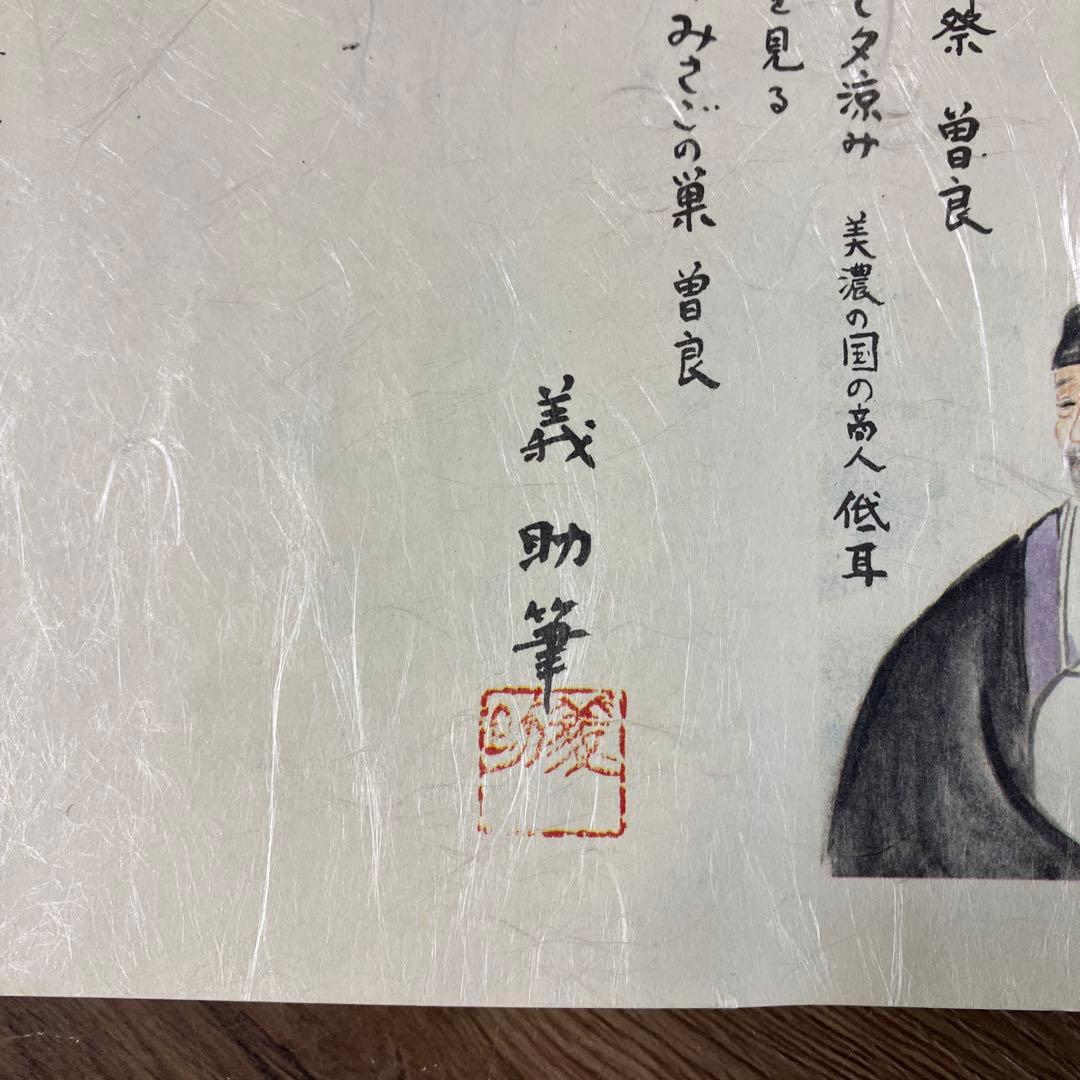 祭 曽良
て夕涼み 美濃の国の商人 低耳
を見る
みさごの巣 曽良
義助筆
義助